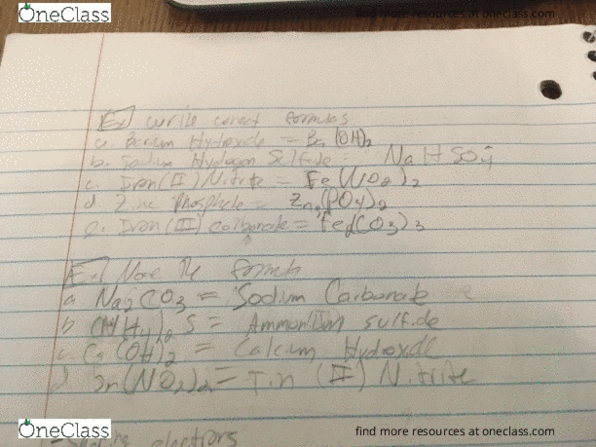 OneClass
find more resources at oneclass.com
Ex] write correct formulas
a. Barium Hydroxide = Ba (OH)2
b. Sodium Hydrogen Sulfide = NaHSO4
c. Iron(II) Nitrite = Fe(NO2)2
d. Zinc Phosphate = Zn3(PO4)2
e. Iron(III) carbonate = Fe2(CO3)3
Ex] Name the formula
a Na2CO3 = Sodium Carbonate
b (NH4)2 S = Ammonium sulfide
c. Ca(OH)2 = Calcium Hydroxide
d. Sn(NO2)2 = Tin (II) Nitrite
electrons
OneClass
find more resources at oneclass.com